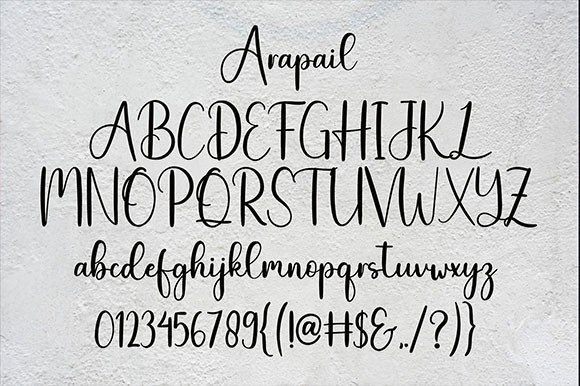 Arapail
ABCDEFGHIJKL
MNOPQRSTUVWXYZ
abcdefghijklmnopqrstuvwxyz
0123456789{(!@#$&,./?)}